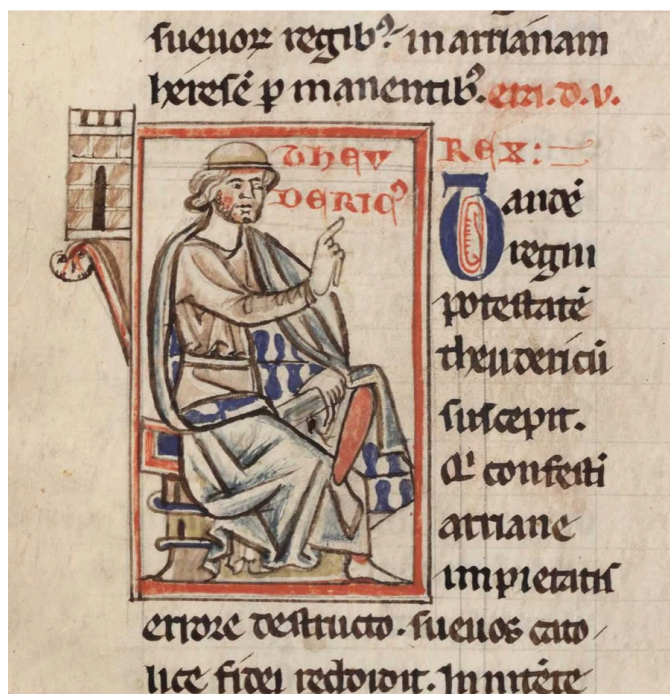 sueuoꝝ regibꝰ. in arrianam
heresē ꝑ manentibꝰ. era. d. v.
theu REX:
dericꝰ
Tandē
regni
potestatē
theudericū
suscepit.
Qͥ confesti
arriane
impietatis
errore destructo. sueuos cato/
lice fidei reddidit. Innitēte